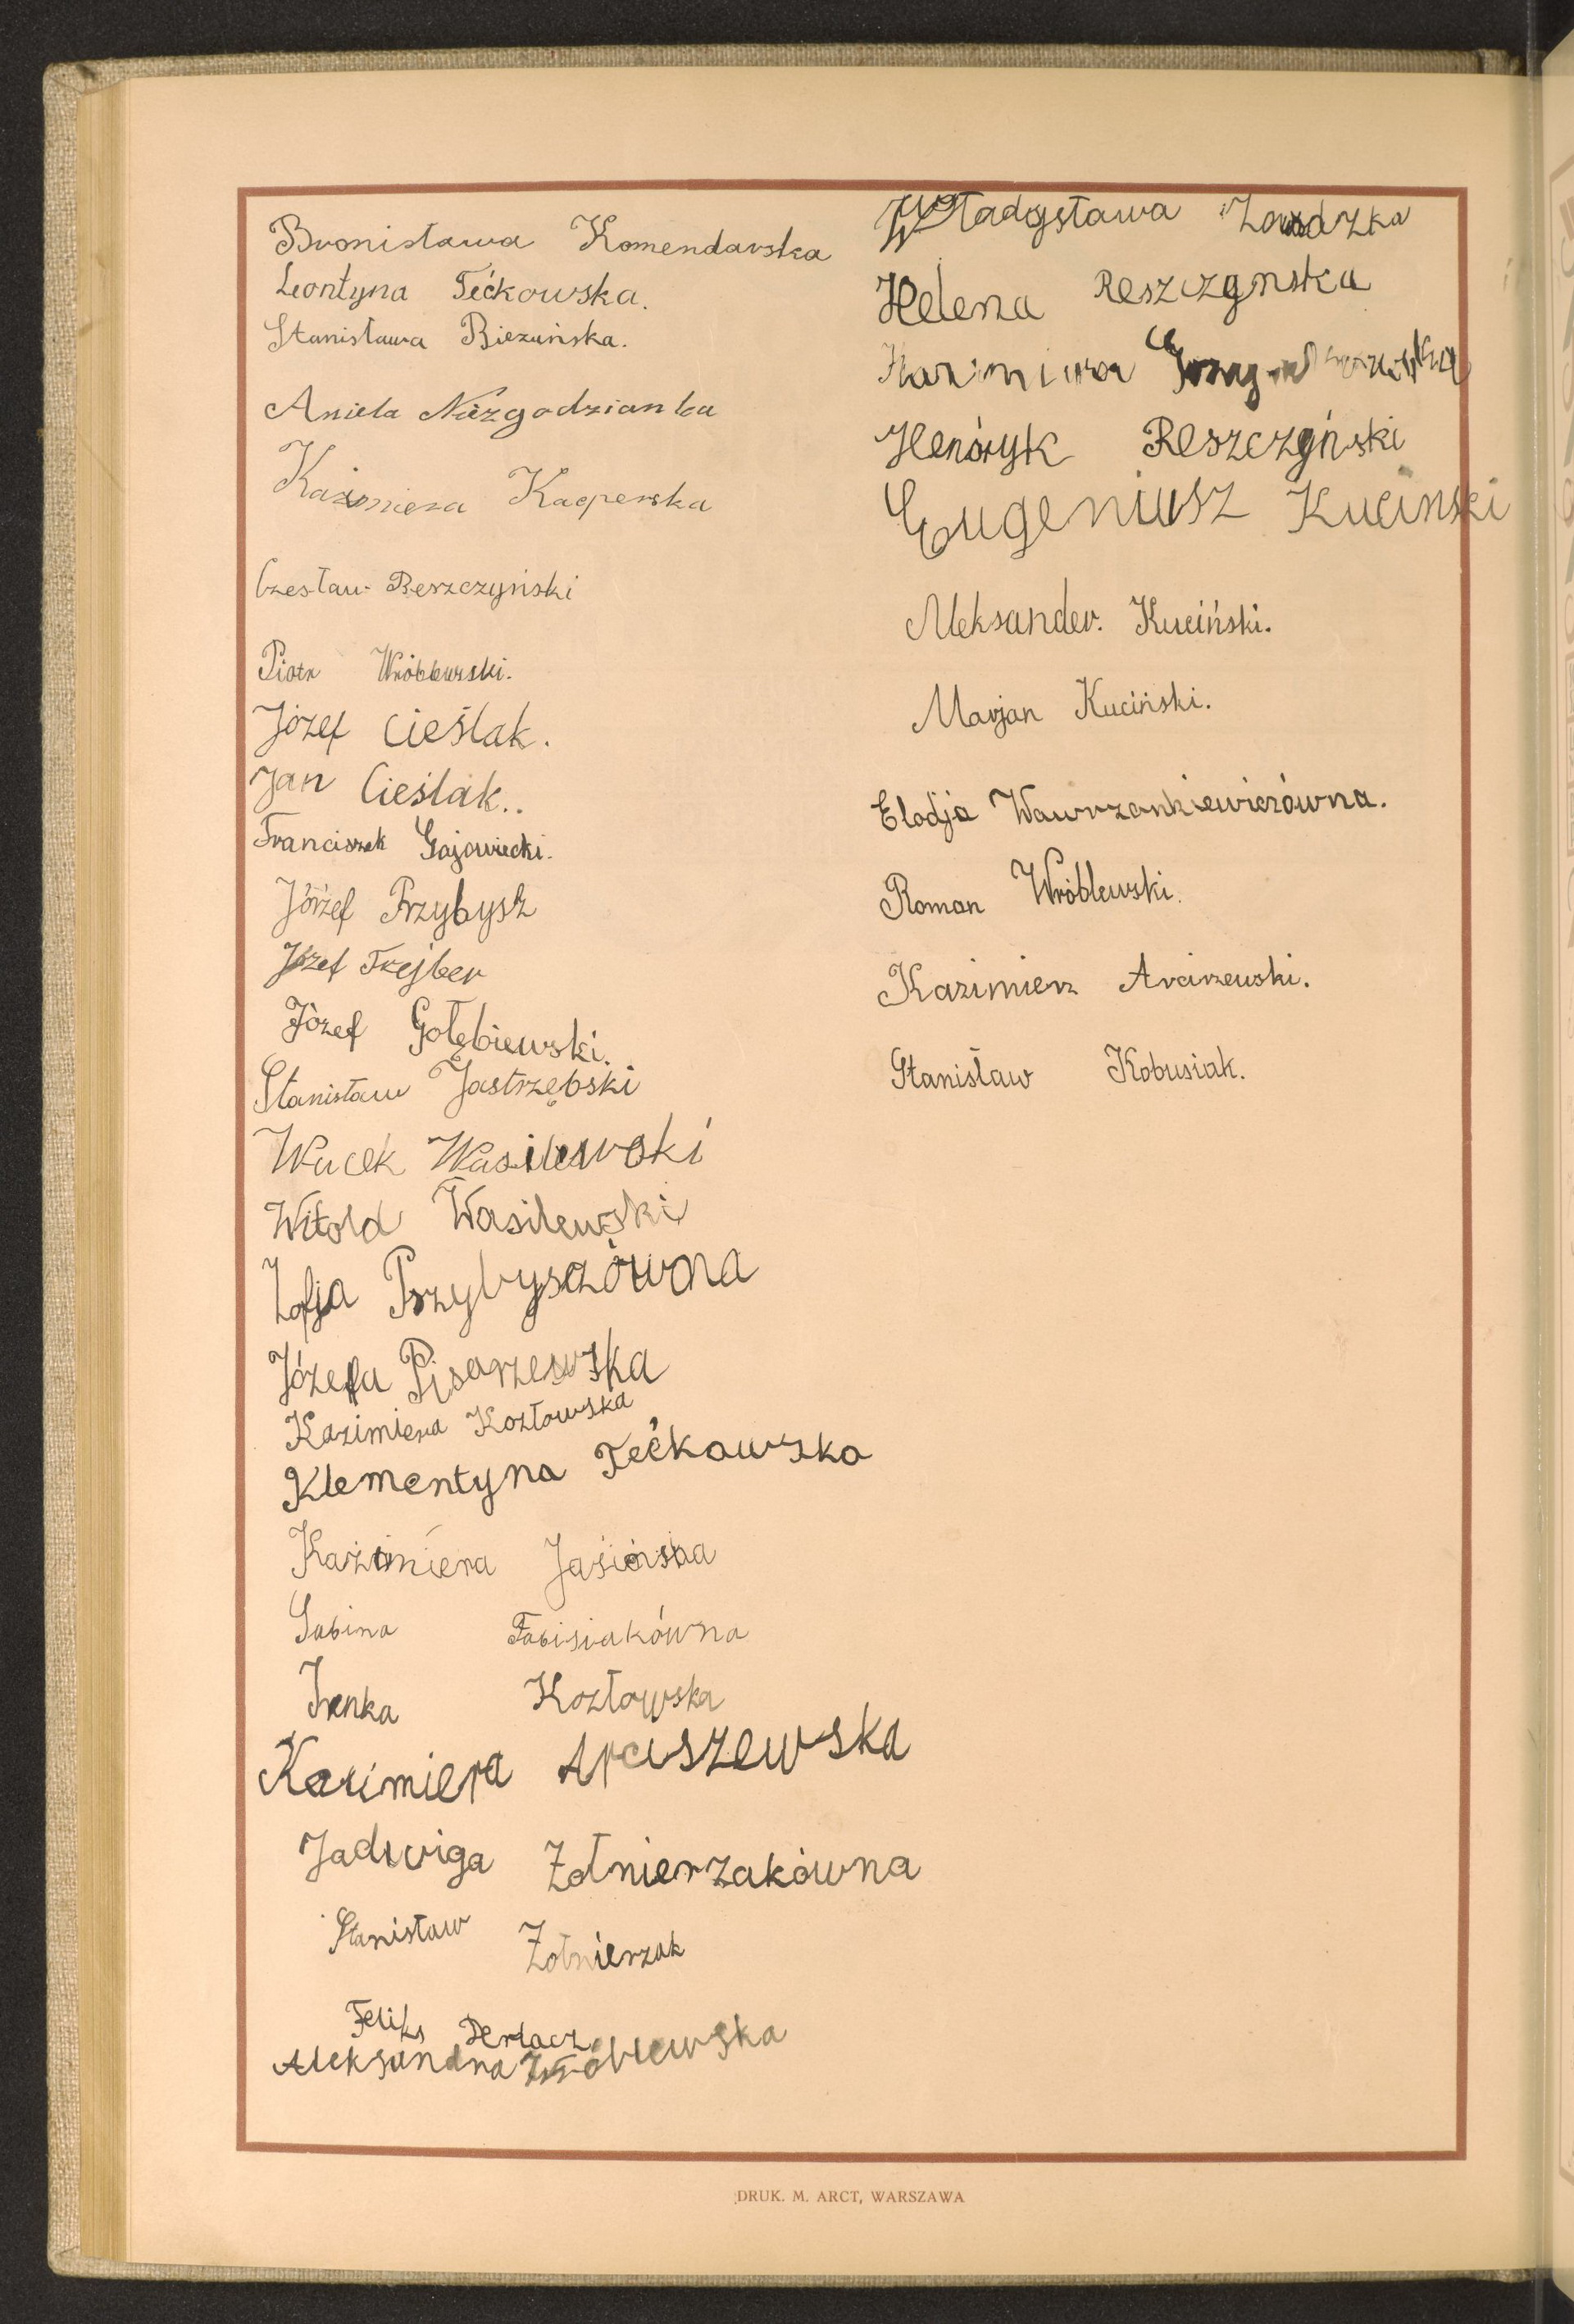 Bronisława Komendarska
Leontyna Tećkowska.
Stanisława Bieżuńska.
Aniela Niezgodzianka
Kazimiera Kacperska
Czesław Reszczyński
Piotr Wróblewski.
Józef Cieślak.
Jan Cieślak..
Franciszek Gajowiecki.
Józef Przybysz
Józef Trejber
Józef Gołębiewski.
Stanisław Jastrzębski
Wacek Wasilewski
Witold Wasilewski
Zofja Przybyszówna
Józefa Pisarzewska
Kazimiera Kozłowska
Klementyna Tećkowska
Kazimiera Jasińska
Sabina Fabisiakówna
Irenka Kozłowska
Kazimiera Arciszewska
Jadwiga Żołnierzakówna
Stanisław Żołnierzak
Feliks Derlacz
Aleksandra Wróblewska
Władysława
Helena Reszczynska
Kazimiera
Henryk Reszczyński
Eugeniusz Kucinski
Aleksander. Kuciński.
Marjan Kuciński.
Elodja Wawrzankiewiczówna.
Roman Wróblewski.
Kazimierz Arciszewski.
Stanisław Kobusiak.
DRUK. M. ARCT, WARSZAWA